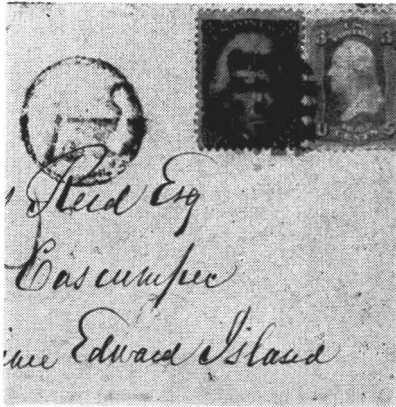 Reid Esq
Cascumpec
ince Edward Island